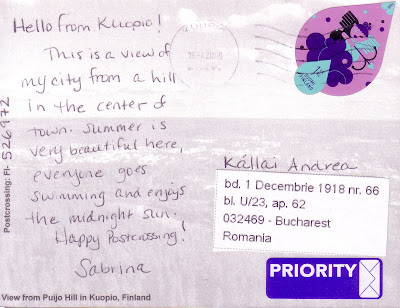 Hello from Kuopio!
This is a view of
my city from a hill
in the center of
town. Summer is
very beautiful here,
everyone goes
swimming and enjoys
the midnight sun.
Happy Postcrossing!
Sabrina
Postcrossing: FI- 526972
View from Puijo Hill in Kuopio, Finland
Kállai Andrea
bd. 1 Decembrie 1918 nr. 66
bl. U/23, ap. 62
032469 - Bucharest
Romania
PRIORITY